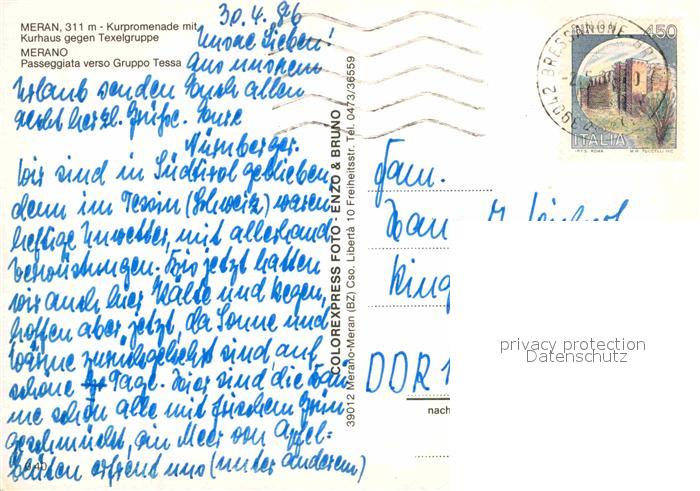 MERAN, 311 m - Kurpromenade mit
Kurhaus gegen Texelgruppe
MERANO
Passeggiata verso Gruppo Tessa
30.4.86
Unsre Lieben!
Aus unserem
Urlaub senden Euch allen
recht herzl. Grüße. Eure
Nürnberger.
Wir sind in Südtirol geblieben
denn im Tessin (Schweiz) waren
heftige Unwetter, mit allerhand
Verwüstungen. Bis jetzt hatten
wir auch hier Kälte und Regen,
hoffen aber jetzt, da Sonne und
Wärme zurückgekehrt sind, auf
schöne Tage. Hier sind die Bäu-
me schon alle mit frischem Grün
geschmückt, ein Meer von Apfel-
blüten erfreut uns (unter anderem)
COLOREXPRESS FOTO · ENZO & BRUNO
39012 Merano-Meran (BZ) Cso. Libertà 10 Freiheitsstr. Tel. 0473/36559
450
ITALIA
I.P.T.S. ROMA
39042 BRESSANONE
Fam.
DDR 1
nach
privacy protection
Datenschutz